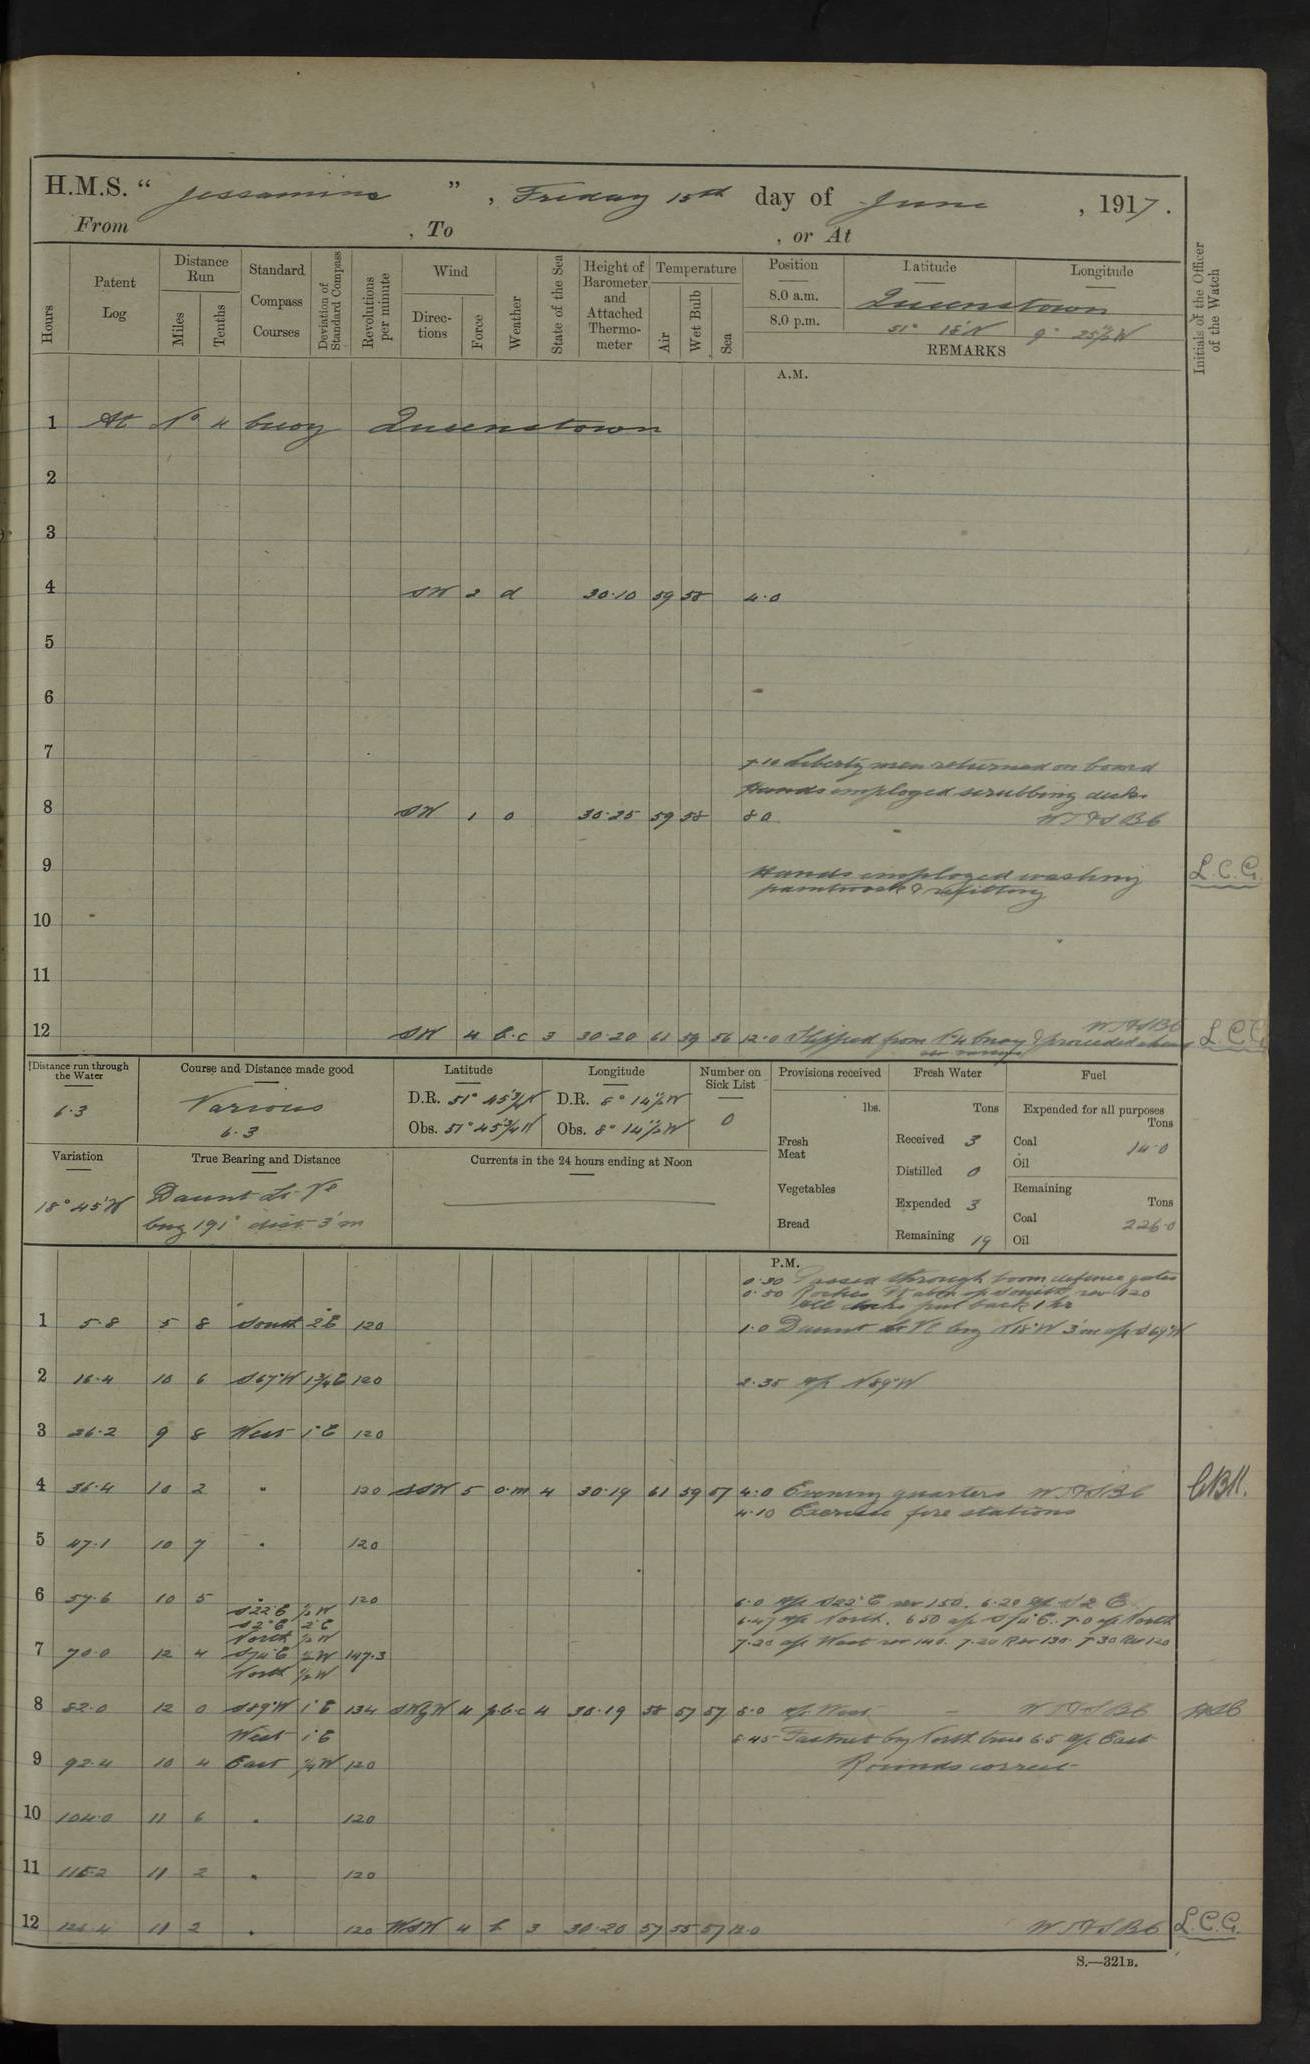 H.M.S. " Jessamine " , Friday 15th day of June , 1917 .
From , To , or At
Hours
Patent Log
Distance Run
Miles
Tenths
Standard Compass Courses
Deviation of Standard Compass
Revolutions per minute
Wind
Direc- tions
Force
Weather
State of the Sea
Height of Barometer and Attached Thermo- meter
Temperature
Air
Wet Bulb
Sea
Position
8.0 a.m.
8.0 p.m.
Latitude
Longitude
Queenstown
51° 18' N 9° 25½ W
REMARKS
Initials of the Officer of the Watch
A.M.
1 At No 4 buoy Queenstown
2
3
4 SW 2 d 30.10 59 58 4.0
5
6
7
7.10 Liberty men returned on board
Hands employed scrubbing decks
8 SW 1 o 30.25 59 58 8.0 WTHSBC
9 Hands employed washing L.C.G.
paintwork & refitting
10
11
12 SW 4 b.c 3 30.20 61 59 56 12.0 Slipped from No 4 buoy & proceeded WTHSBC L.C.G.
Distance run through the Water
6.3
Course and Distance made good
Various
6.3
Latitude
D.R. 51° 45¾ N
Obs. 51° 45¾ N
Longitude
D.R. 8° 14½ W
Obs. 8° 14½ W
Number on Sick List
0
Provisions received
lbs.
Fresh Meat
Vegetables
Bread
Fresh Water
Tons
Received 3
Distilled 0
Expended 3
Remaining 19
Fuel
Expended for all purposes
Tons
Coal 14.0
Oil
Remaining
Tons
Coal 226.0
Oil
Variation
18° 45' W
True Bearing and Distance
Daunt Lt Ve
brg 191° dist 3'm
Currents in the 24 hours ending at Noon
P.M.
0.30 Passed through boom defence gates
0.50 Roches South rev 120
All clocks put back 1 hr
1 5.8 5 8 South 2°E 120 1.0 Daunt Lt Ve brg N18°W 3'm a/c S69°W
2 16.4 10 6 S67°W 1¾E 120 2.35 a/c N89°W
3 26.2 9 8 West 1°E 120
4 36.4 10 2 " 120 SSW 5 o.m 4 30.19 61 59 57 4.0 Evening quarters WTHSBC
4.10 Exercise fire stations
5 47.1 10 7 " 120
6 57.6 10 5 " 120 6.0 a/c S22°E rev 150. 6.20 a/c S 2 E
S22°E ½W
S2°E 2°E 6.47 a/c North. 6.50 a/c S74°E. 7.0 a/c North
North ½W
7 70.0 12 4 S74°E ½W 147.3 7.20 a/c West rev 140. 7.20 Rev 130. 7.30 Rev 120
North ½W
8 82.0 12 0 S89°W 1°E 134 SWbW 4 p.b.c 4 30.19 58 57 57 8.0 a/c West WTHSBC
West 1°E 8.45 Fastnet brg North true 6.5 a/c East
9 92.4 10 4 East ¼W 120 Rounds correct
10 104.0 11 6 " 120
11 115.2 11 2 " 120
12 126.4 11 2 " 120 WSW 4 b 3 30.20 57 55 57 12.0 WTHSBC L.C.G.
S.—321B.